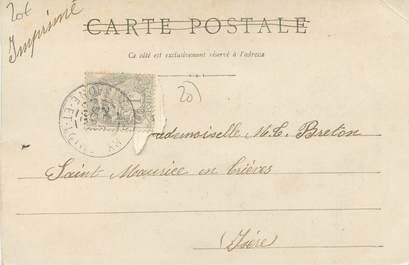 20€
Imprimé
CARTE POSTALE
Ce côté est exclusivement réservé à l'adresse
20
Mademoiselle M. C. Breton
Saint Maurice en Trièves
Isère